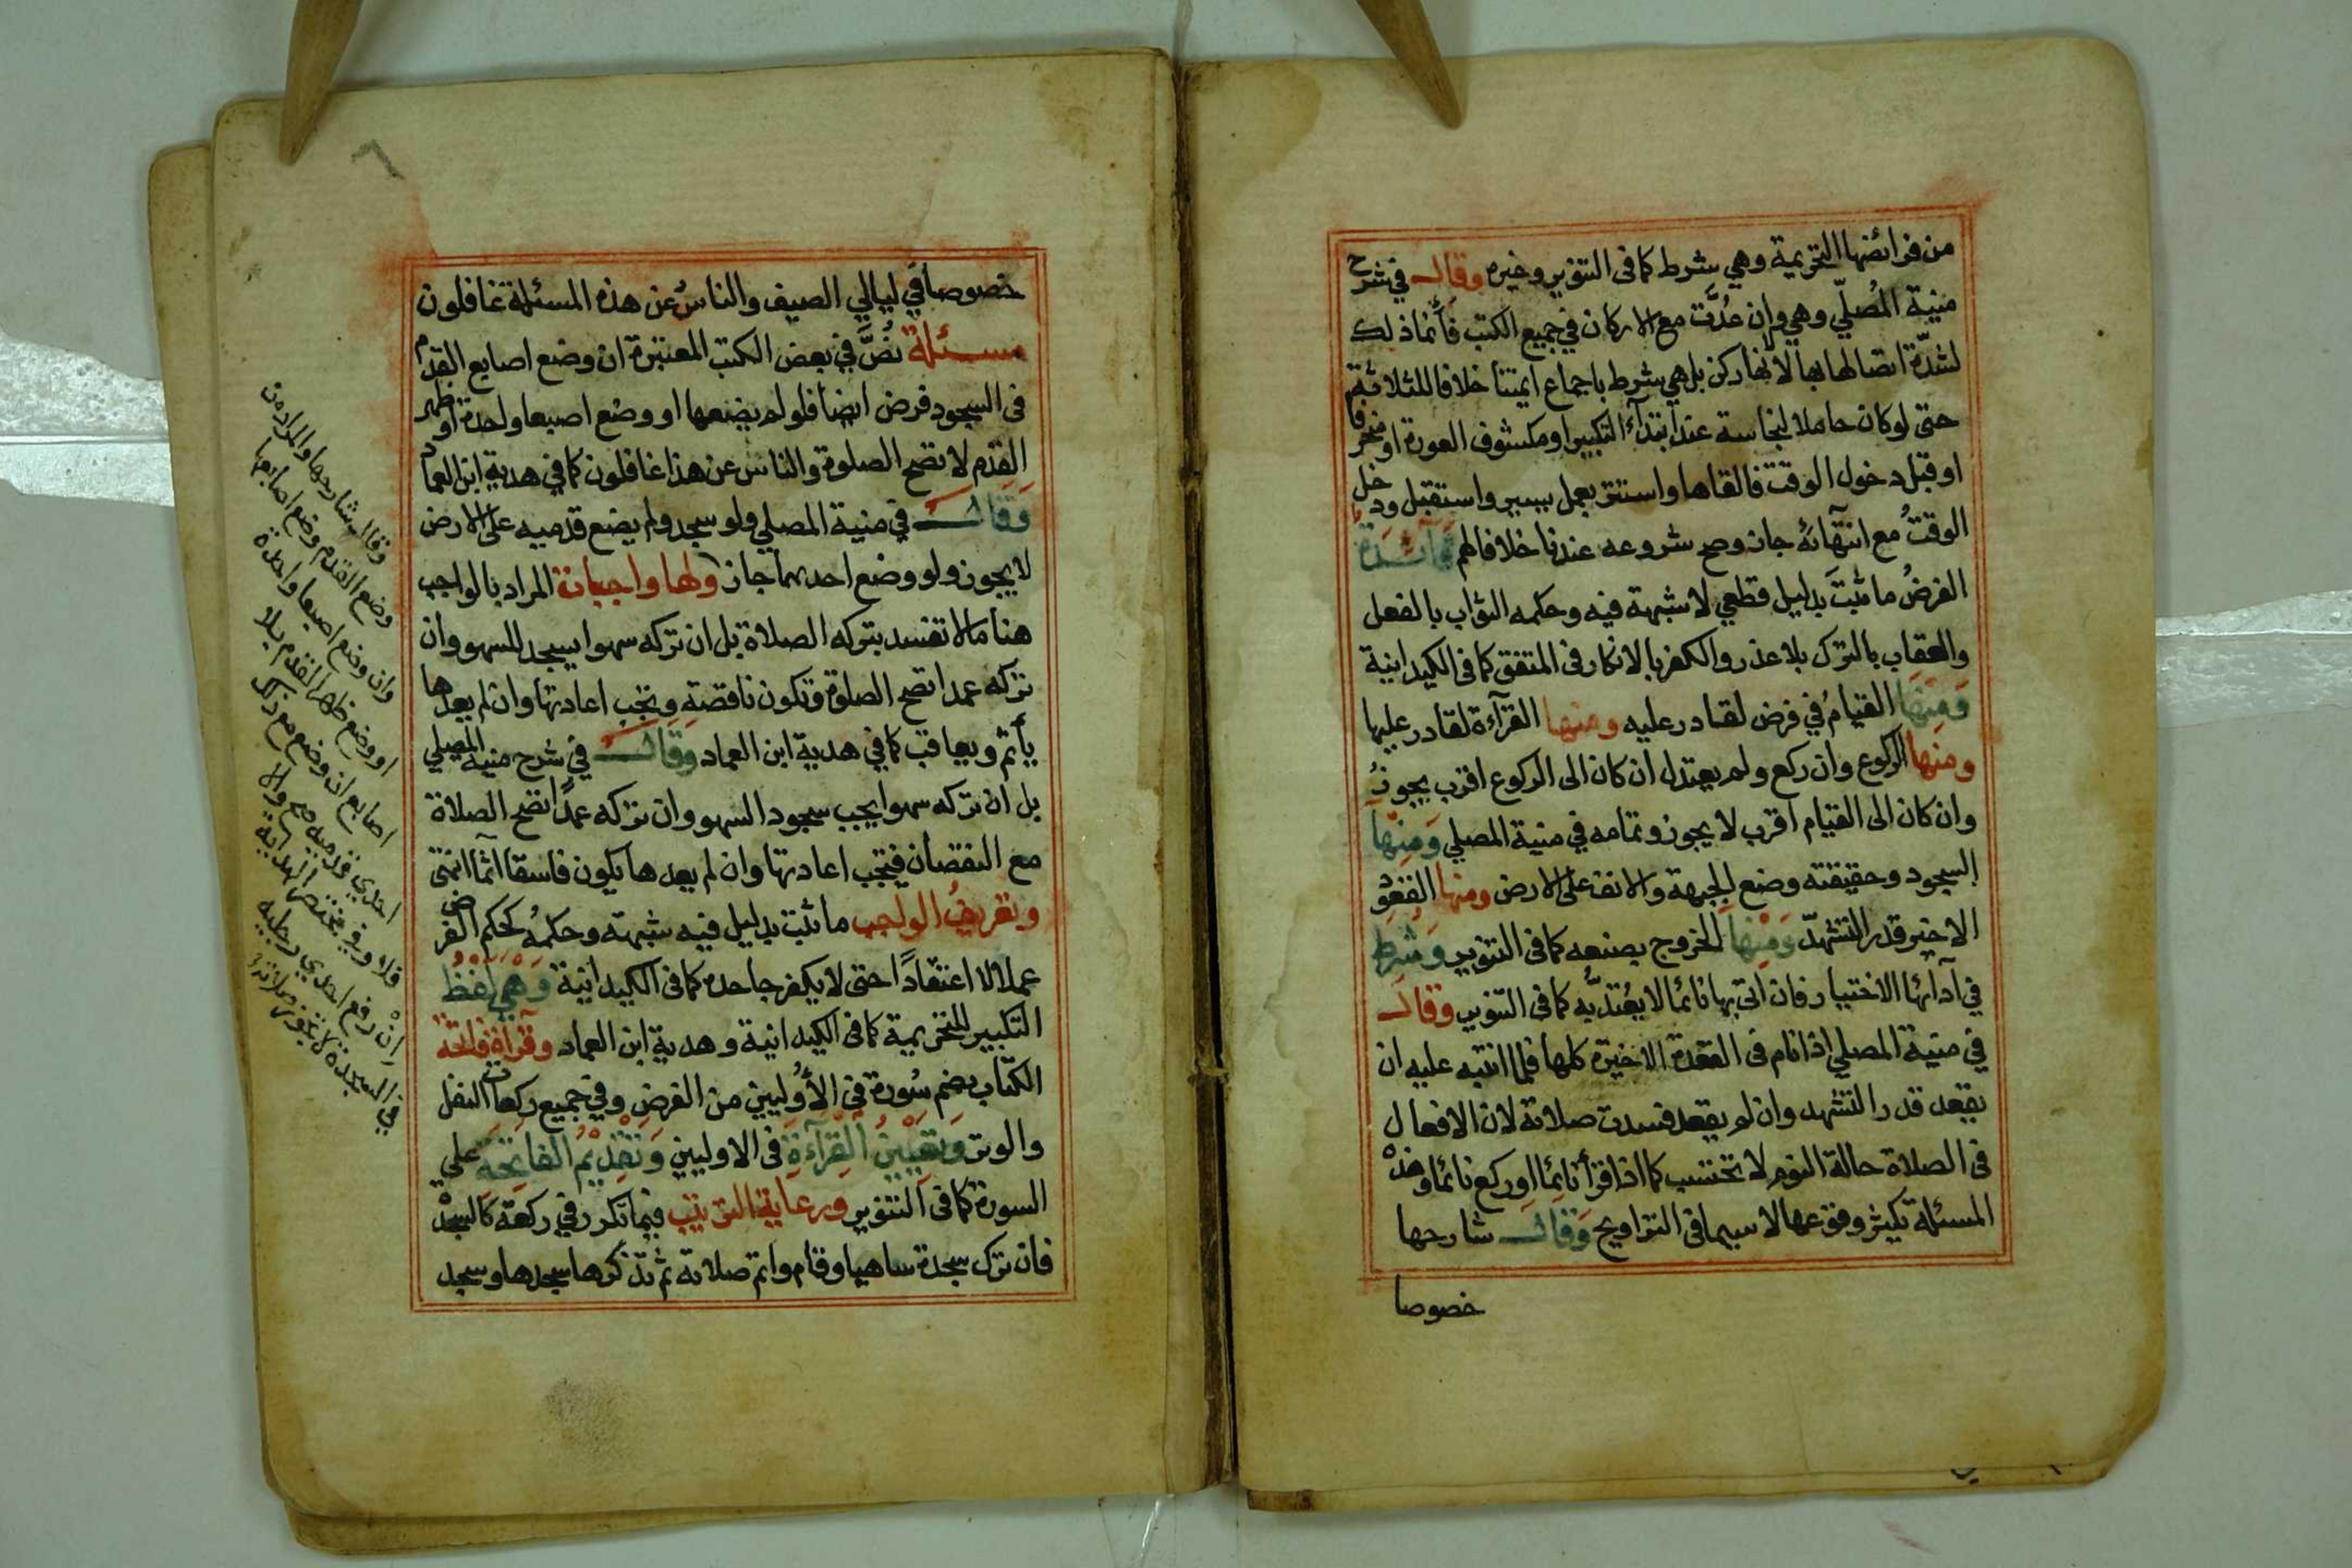 من فرائضها التحريمة وهي شرط كما فى التنوير وغيره وقال في شرح
منية المُصلّي وهي وان عُدَّت مع الاركان في جميع الكتب فأنما ذلك
لشدّة اتصالها بها لا لأنها ركن بل هي شرط باجماع ايمتنا خلافا للثلاثة
حتى لو كان حاملا لنجاسة عند ابتدآء التكبير او مكشوف العورة او منحرفا
او قبل دخول الوقت فالقاها واستتر بعمل يسير واستقبل ودخل
الوقتُ مع انتهآئهٔ جاز وصح شروعه عندنا خلافا لهم فآئدة
الفرضُ ما ثبتَ بدليل قطعي لا شبهة فيه وحكمه الثواب بالفعل
والعقاب بالترك بلا عذر والكفر بالانكار فى المتفق كما فى الكيدانية
وَمِنها القيامُ في فرض لقادر عليه ومنها القرآءة لقادر عليها
ومنها الركوع وان ركع ولم يعتدل ان كان الى الركوع اقرب يجوزُ
وان كان الى القيام اقرب لا يجوز وتمامه في منية المصلي وَمِنها
السجود وحقيقته وضع الجبهة والانف على الارض ومنها القعود
الاخير قدر التشهدّ وَمِنها الخروج بصنعه كما فى التنوير وَشُرط
في آدآئها الاختيار فان اتى بها نائما لا يُعْتدُّ به كما فى التنوير وقال
في منية المصلي اذا نام فى القعدة الاخيرة كلها فلما انتبه عليه ان
يقعد قدر التشهد وان لم يقعد فسدت صلاته لان الافعال
فى الصلاة حالة النوم لا تحتسب كما اذا قرأ نائما او ركع نائما وهذه
المسئلة يكثر وقوعها لا سيما فى التراويح وَقال شارحها
خصوصا
خصوصا في ليالي الصيف والناسُ عن هذه المسئلة غافلون
مسئلة نُصَّ في بعض الكتب المعتبرة ان وضع اصابع القدم
فى السجود فرض ايضا فلو لم يضعها او وضع اصبعا واحدة او ظهر
القدم لا تصح الصلوة والناس عن هذا غافلون كما في هدية ابن العماد
وَقال في منية المصلي ولو سجد ولم يضع قدميه على الارض
لا يجوز ولو وضع احدهما جاز ولها واجبات المراد بالواجب
هنا ما لا تفسد بتركه الصلاة بل ان تركه سهوا يسجد للسهو وان
تركه عمدا تصح الصلوة وتكون ناقصة ويجب اعادتها وان لم يعدها
يأثم ويعاقب كما في هدية ابن العماد وَقال في شرح منية المصلي
بل ان تركه سهوا يجب سجود السهو وان تركه عمدًا تصح الصلاة
مع النقصان فيجب اعادتها وان لم يعدها يكون فاسقا آثما انتهى
وتعريفُ الواجب ما ثبت بدليل فيه شبهة وحكمهُ كحكم الفرض
عملا لا اعتقادًا حتى لا يكفر جاحده كما فى الكيدانية وَهْيَ لَفْظُ
التكبير للتحريمة كما فى الكيدانية وهدية ابن العماد وقرآءة فاتحة
الكتاب بضم سُورة فى الأُوليين من الفرض وفي جميع ركعات النفل
والوتر وَتعيينُ القرآءة فى الاوليين وَتقديمُ الفاتحة على
السورة كما فى التنوير ورعاية الترتيب فيما تكرر في ركعة كالسجدة
فان ترك سجدة ساهيا وقام واتم صلاته ثم تذكرها سجدها وسجد
وقال شارحها والمراد من
وضع القدم وضع اصابعها
وان وضع اصبعا واحدة
او وضع ظهر القدم بلا
اصابع ان وضع مع ذلك
احدي قدميه صح والا
فلا وفي مختصر الهداية
ان رفع احدي رجليه
في السجدة لا تجوز صلاته